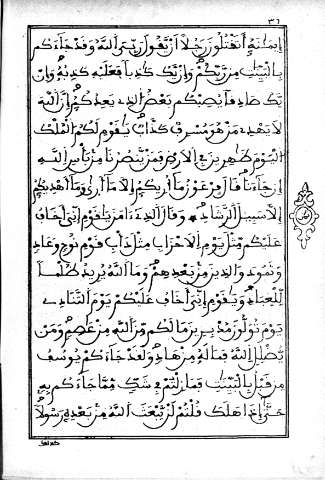 ٣٦
إيمنه أتقتلون رجلا أن يقول ربي الله وقد جاءكم
بالبينت من ربكم وإن يك كذبا فعليه كذبه وإن
يك صادقا يصبكم بعض الذي يعدكم إن الله
لا يهدي من هو مسرف كذاب يقوم لكم الملك
اليوم ظهرين في الارض فمن ينصرنا من بأس الله
إن جاءنا قال فرعون ما أريكم إلا ما أرى وما أهديكم
إلا سبيل الرشاد وقال الذي ءامن يقوم إني أخاف
عليكم مثل يوم الاحزاب مثل دأب قوم نوح وعاد
وثمود والذين من بعدهم وما الله يريد ظلما
للعباد ويقوم إني أخاف عليكم يوم التناد
يوم تولون مدبرين ما لكم من الله من عاصم ومن
يضلل الله فما له من هاد ولقد جاءكم يوسف
من قبل بالبينت فما زلتم في شك مما جاءكم به
حتى إذا هلك قلتم لن يبعث الله من بعده رسولا
كذلك